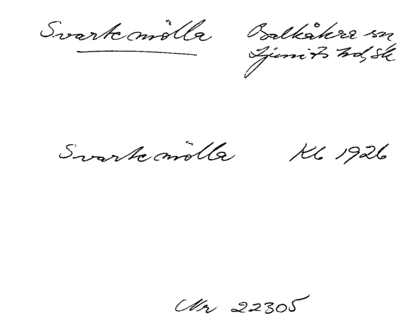 Svartemölla Balkåkra sn
Ljunits hd, Sk
Svartemölla Kb 1926
Nr 22305